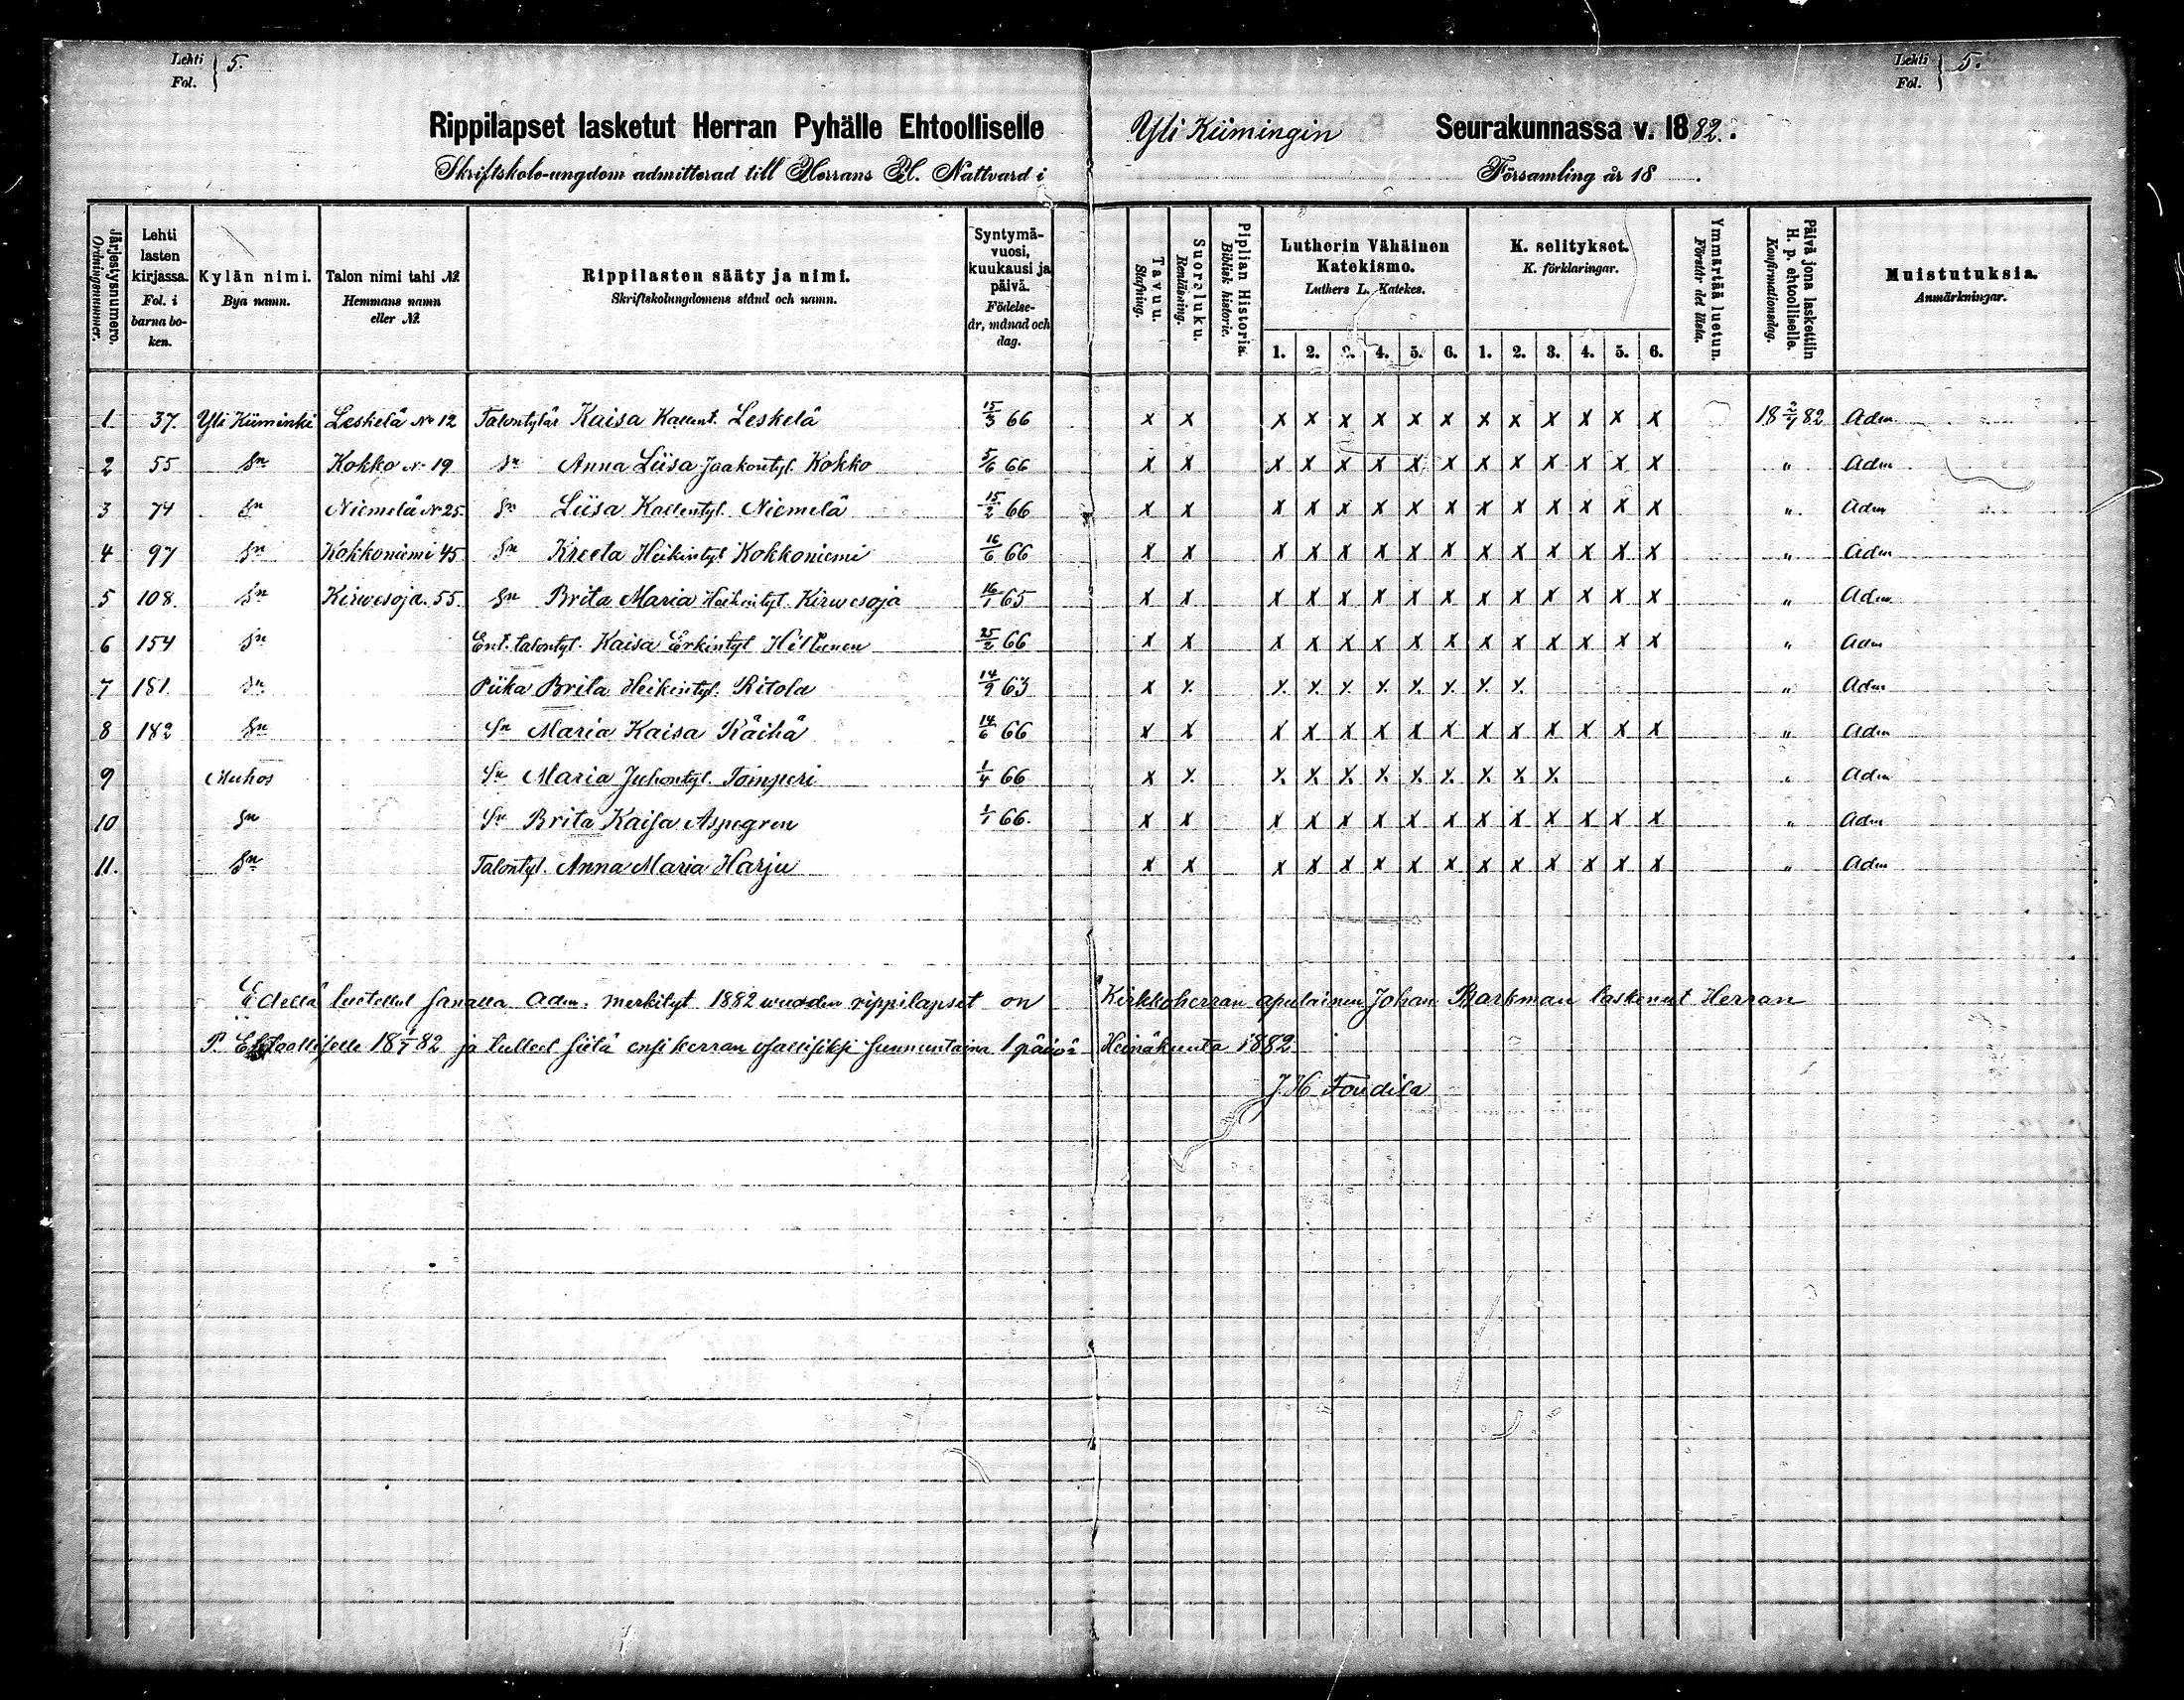 Lehti Fol. } 5.
Lehti Fol. } 5.
Rippilapset lasketut Herran Pyhälle Ehtoolliselle Yli Kiimingin Seurakunnassa v. 1882.
Skriftskole-ungdom admitterad till Herrans H. Nattvard i Församling år 18 .
Järjestysnumero. Ordningsnummer.
Lehti lasten kirjassa. Fol. i barnaboken.
Kylän nimi. Bya namn.
Talon nimi tahi №. Hemmans namn eller №.
Rippilasten sääty ja nimi. Skriftskolungdomens stånd och namn.
Syntymävuosi, kuukausi ja päivä. Födelseår, månad och dag.
Tavuu. Stafning.
Suoraluku. Renläsning.
Piplian Historia. Biblisk historie.
Lutherin Vähäinen Katekismo. Luthers L. Katekes.
1. 2. 3. 4. 5. 6.
K. selitykset. K. förklaringar.
1. 2. 3. 4. 5. 6.
Ymmärtää luetun. Förstår det lästa.
Päivä jona laskettiin H. p. ehtoolliselle. Konfirmationsdag.
Muistutuksia. Anmärkningar.
1 37. Yli Kiiminki Leskelä No 12 Talontytär Kaisa Kallent. Leskelä 15/3 66 x x x x x x x x x x x x x x 18 2/7 82 Adm
2 55 Sn Kokko N. 19 Sn Anna Liisa Jaakontyt. Kokko 5/6 66 x x x x x x x x x x x x x x " Adm
3 74 Sn Niemelä No 25. Sn Liisa Kallentyt. Niemelä 15/2 66 x x x x x x x x x x x x x x " Adm
4 97 Sn Kokkoniemi 45 Sn Kreeta Heikintyt Kokkoniemi 16/6 66 x x x x x x x x x x x x x x " Adm
5 108. Sn Kirwesoja. 55. Sn Brita Maria Heikintyt. Kirwesoja 16/1 65 x x x x x x x x x x x x x x " Adm
6 154 Sn Ent. talontyt. Kaisa Erkintyt Hiltunen 25/2 66 x x x x x x x x x x x x x x " Adm
7 181. Sn Piika Brita Heikintyt. Ritola 14/9 63 x x x x x x x x x x " Adm
8 182 Sn Sn Maria Kaisa Räihä 14/6 66 x x x x x x x x x x x x x x " Adm
9 Muhos Sn Maria Juhontyt. Tomperi 1/4 66 x x x x x x x x x x x " Adm
10 Sn Sn Brita Kaisa Aspegren 1/1 66. x x x x x x x x x x x x x x " Adm
11. Sn Talontyt. Anna Maria Harju x x x x x x x x x x x x x x " Adm
Edellä luetellut sanalla Adm. merkityt 1882 wuoden rippilapset on Kirkkoherran apulainen Johan Barkman laskenut Herran
P. Ehtoolliselle 18 1/7 82 ja tulleet siitä ensi kerran osallisiksi sunnuntaina 1 päivä Heinäkuuta 1882
J. H.